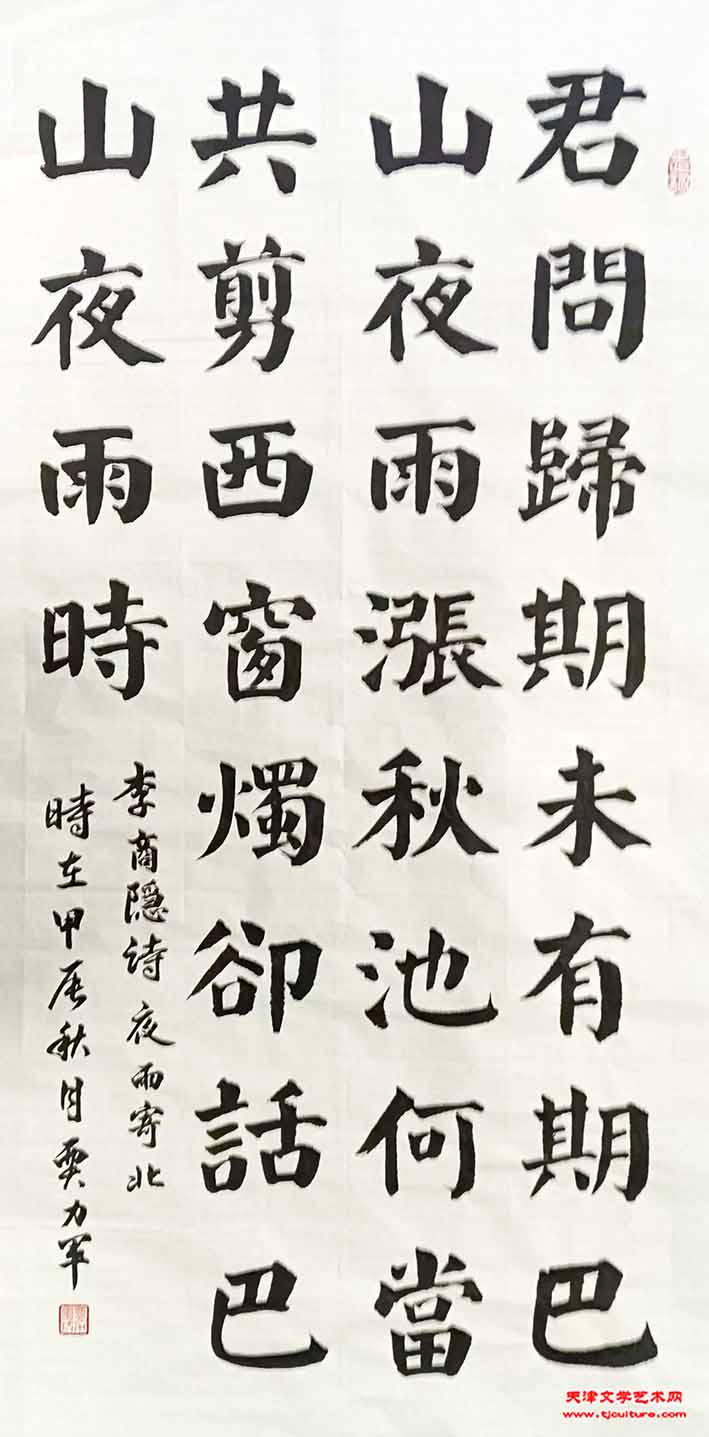 君問歸期未有期巴
山夜雨漲秋池何當
共剪西窗燭卻話巴
山夜雨時
李商隱詩夜雨寄北
時在甲辰秋月賈力军
天津文学艺术网
www.tjculture.com